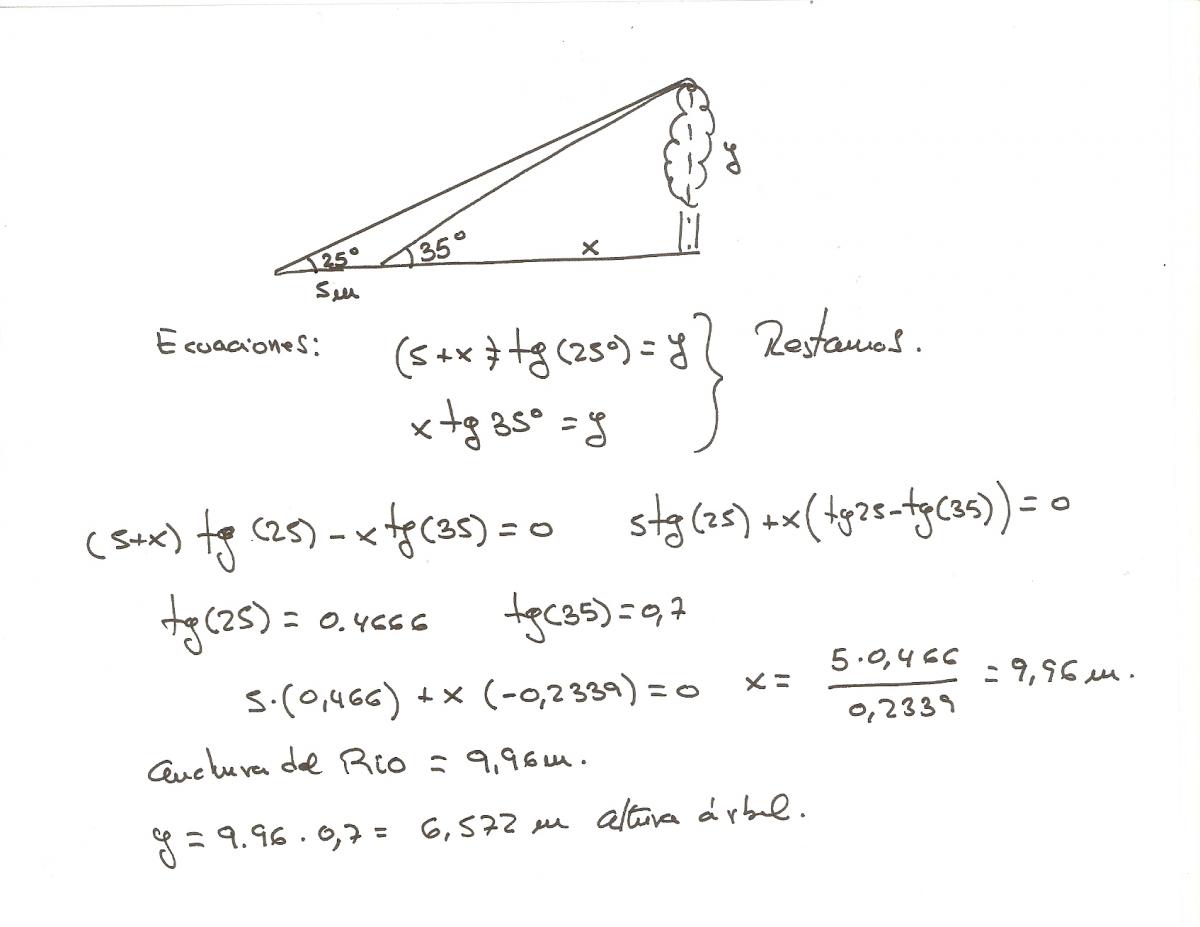 y
25° 35° x
5m
Ecuaciones: (5+x) tg(25°) = y } Restamos.
x tg 35° = y
(5+x) tg (25) - x tg(35) = 0 5tg(25) + x(tg25-tg(35)) = 0
tg(25) = 0.4666 tg(35) = 0,7
5·(0,466) + x (-0,2339) = 0 x = 5·0,466 / 0,2339 = 9,96 m.
Anchura del Rio = 9,96 m.
y = 9.96 · 0,7 = 6,572 m altura árbol.